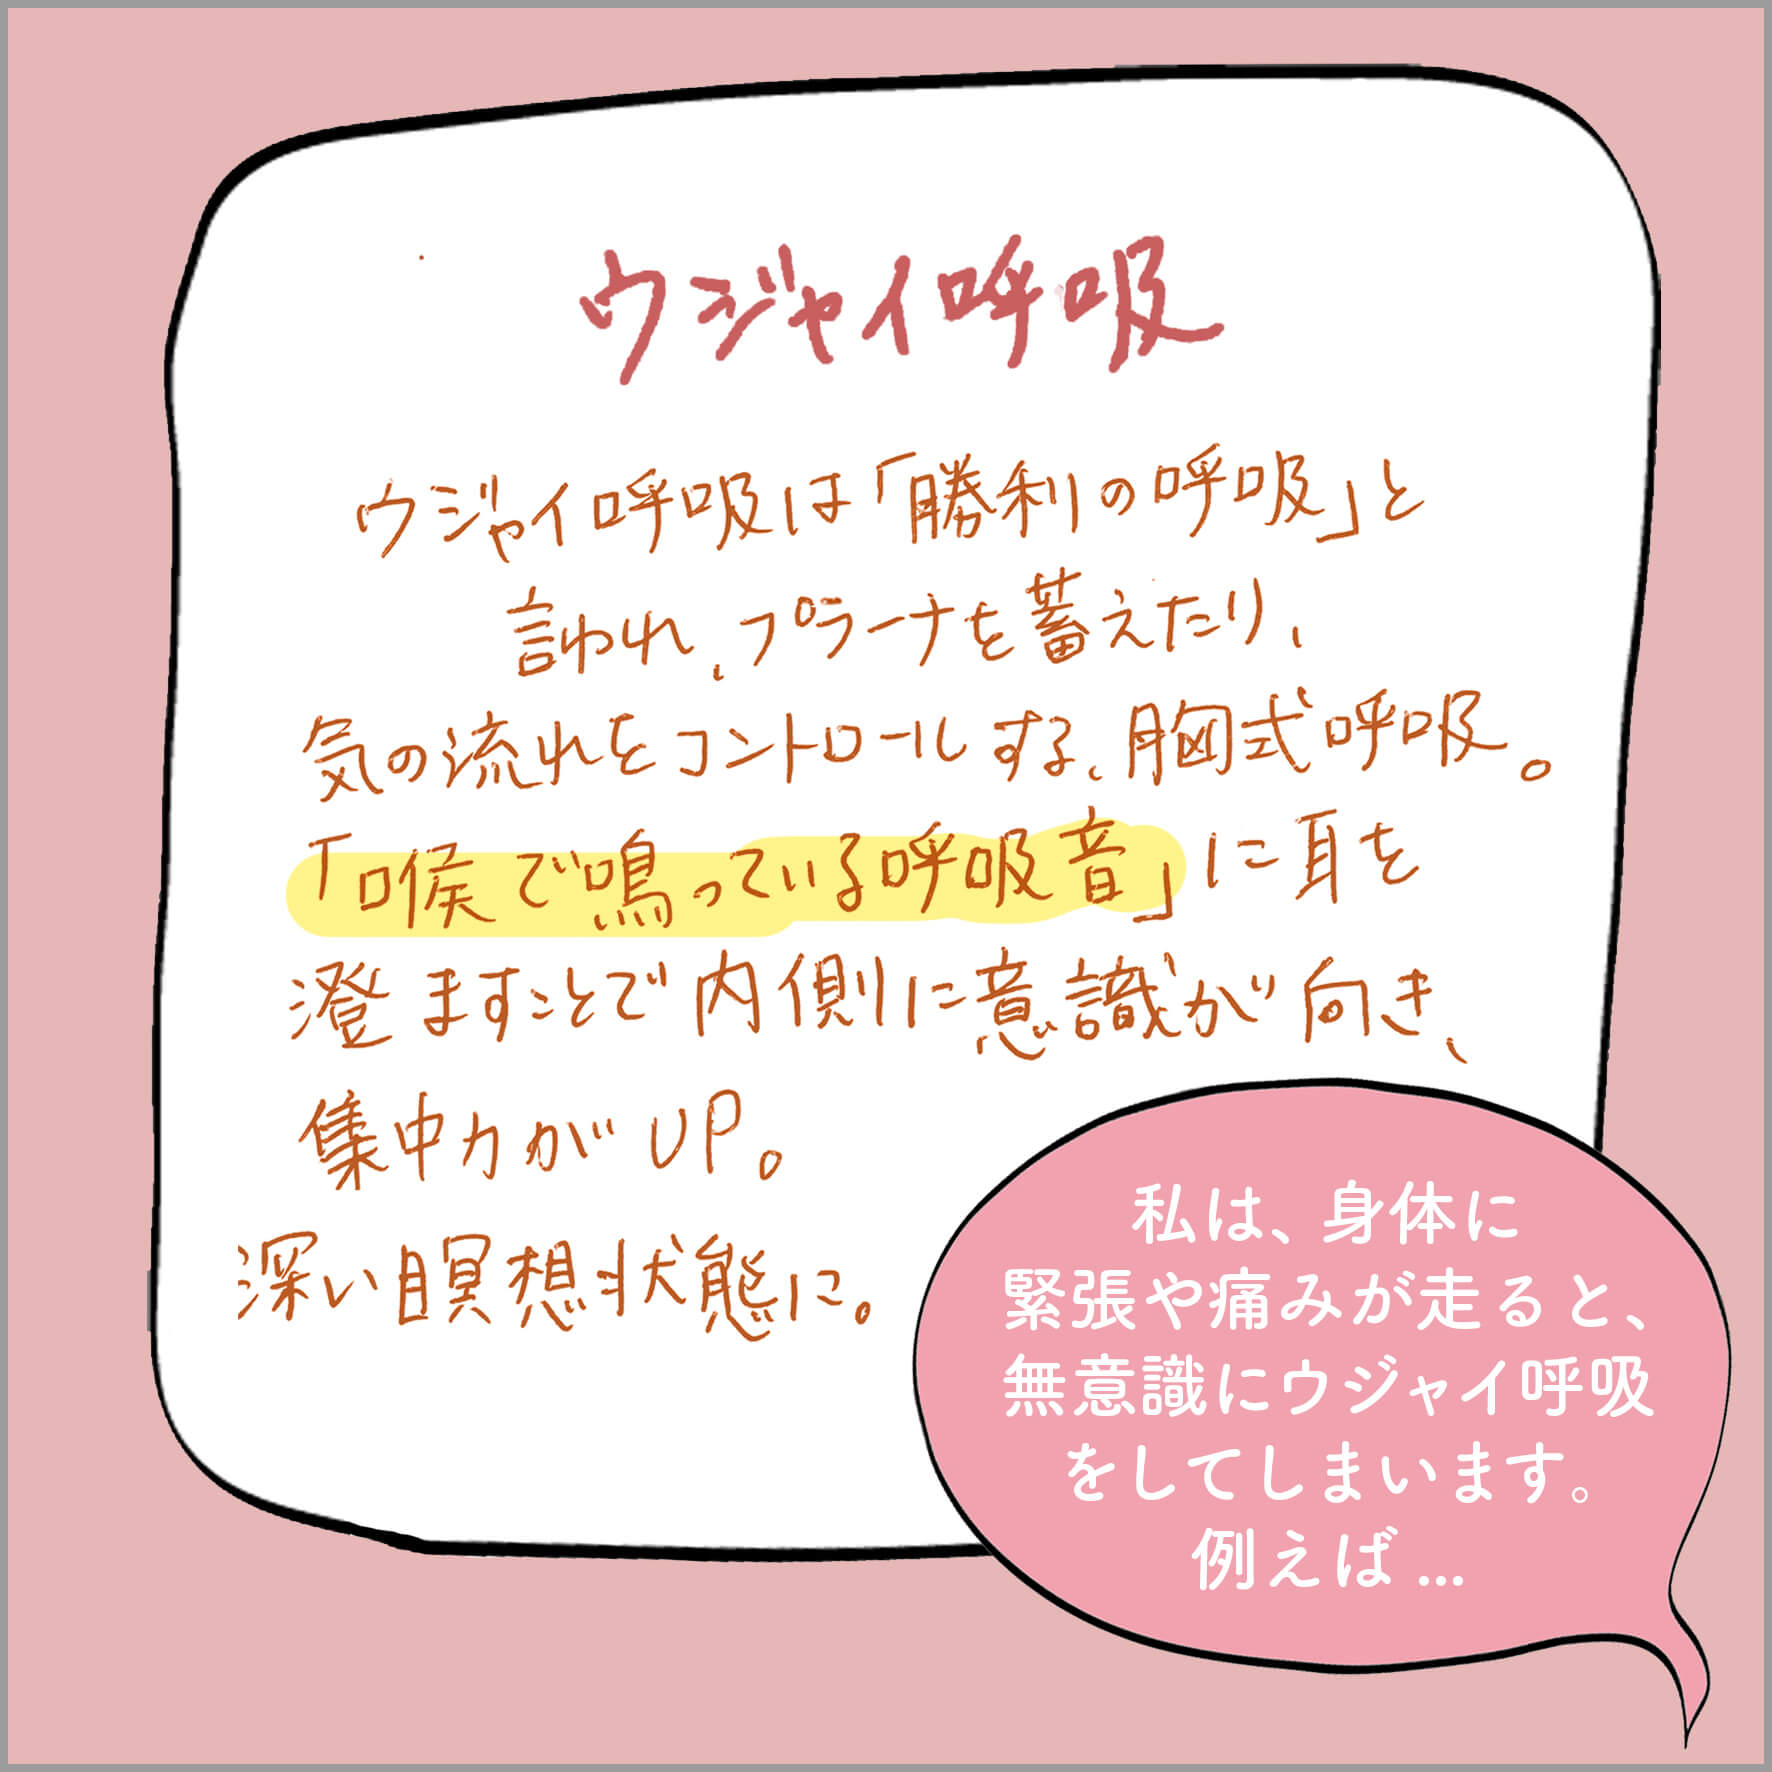 ウジャイ呼吸
ウジャイ呼吸は「勝利の呼吸」と
言われ、プラーナを蓄えたり、
気の流れをコントロールする、胸式呼吸。
「喉で鳴っている呼吸音」に耳を
澄ますことで内側に意識が向き、
集中力がUP。
深い瞑想状態に。
私は、身体に
緊張や痛みが走ると、
無意識にウジャイ呼吸
をしてしまいます。
例えば...